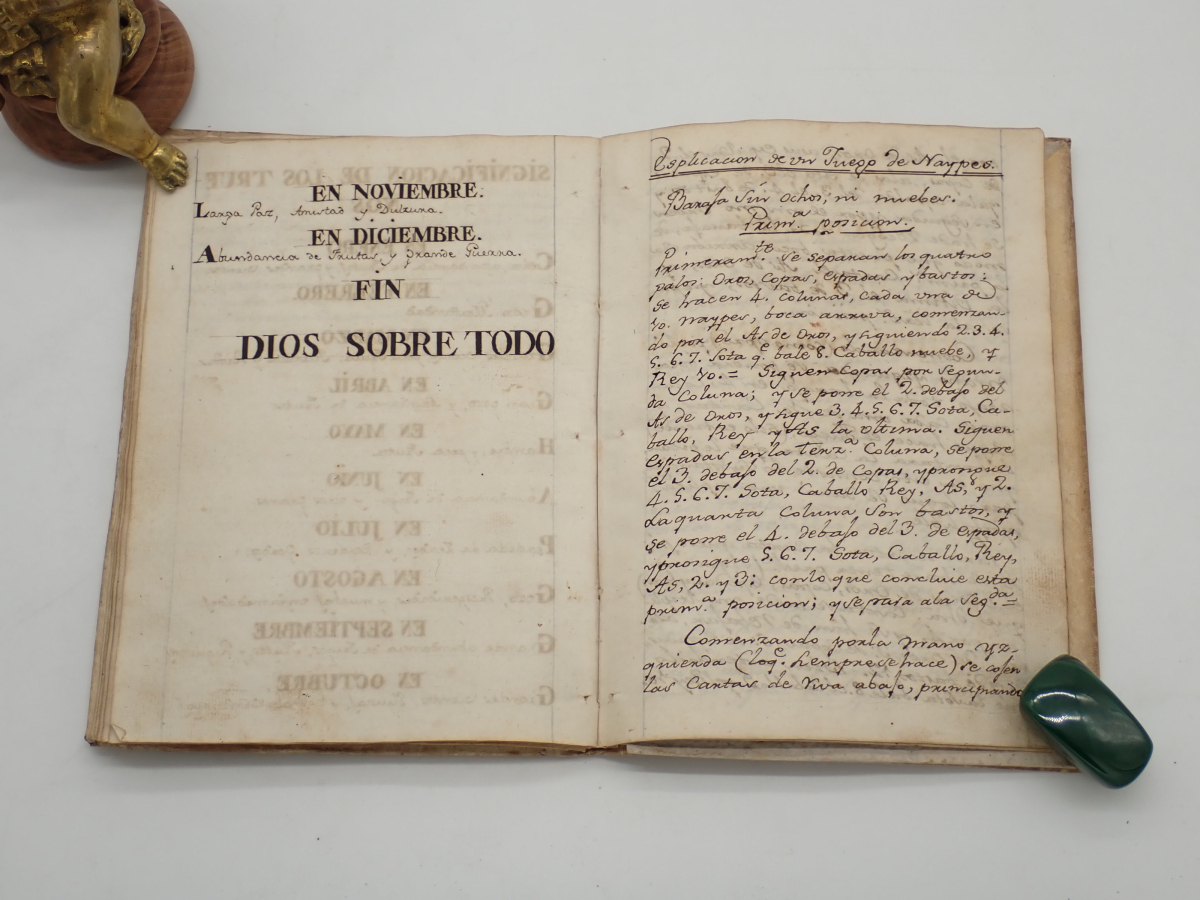 EN NOVIEMBRE.
Larga Paz, Amistad y Dulzura.
EN DICIEMBRE.
Abundancia de Frutas, y grande Guerra.
FIN
DIOS SOBRE TODO
Esplicacion de un Juego de Naypes.
Baraja sin ochos, ni nuebes.
Prim.ª posicion.
Primeram.te se separan los quatro
palos: Oros, Copas, espadas y bastos:
se hacen 4. colunas, cada una de
10. naypes, boca arriva, comenzan-
do por el As de Oros, y siguiendo 2.3.4.
5.6.7. Sota q.e bale 8. Caballo nuebe, y
Rey 10.= Siguen Copas por segun-
da Coluna; y se pone el 2. debajo del
As de Oros, y sigue 3.4.5.6.7. Sota, Ca-
ballo, Rey y As la ultima. Siguen
espadas en la Terz.ª Coluna, se pone
el 3. debajo del 2. de Copas, y prosigue
4.5.6.7. Sota, Caballo Rey, As, y 2.
La quarta Coluna son bastos, y
se pone el 4. debajo del 3. de espadas,
y prosigue 5.6.7. Sota, Caballo, Rey,
As, 2. y 3: con lo que concluie esta
prim.ª posicion; y se pasa a la seg.da =
Comenzando por la mano yz-
quierda (loq.e siempre se hace) se cojen
las Cartas de riva abajo, principiando